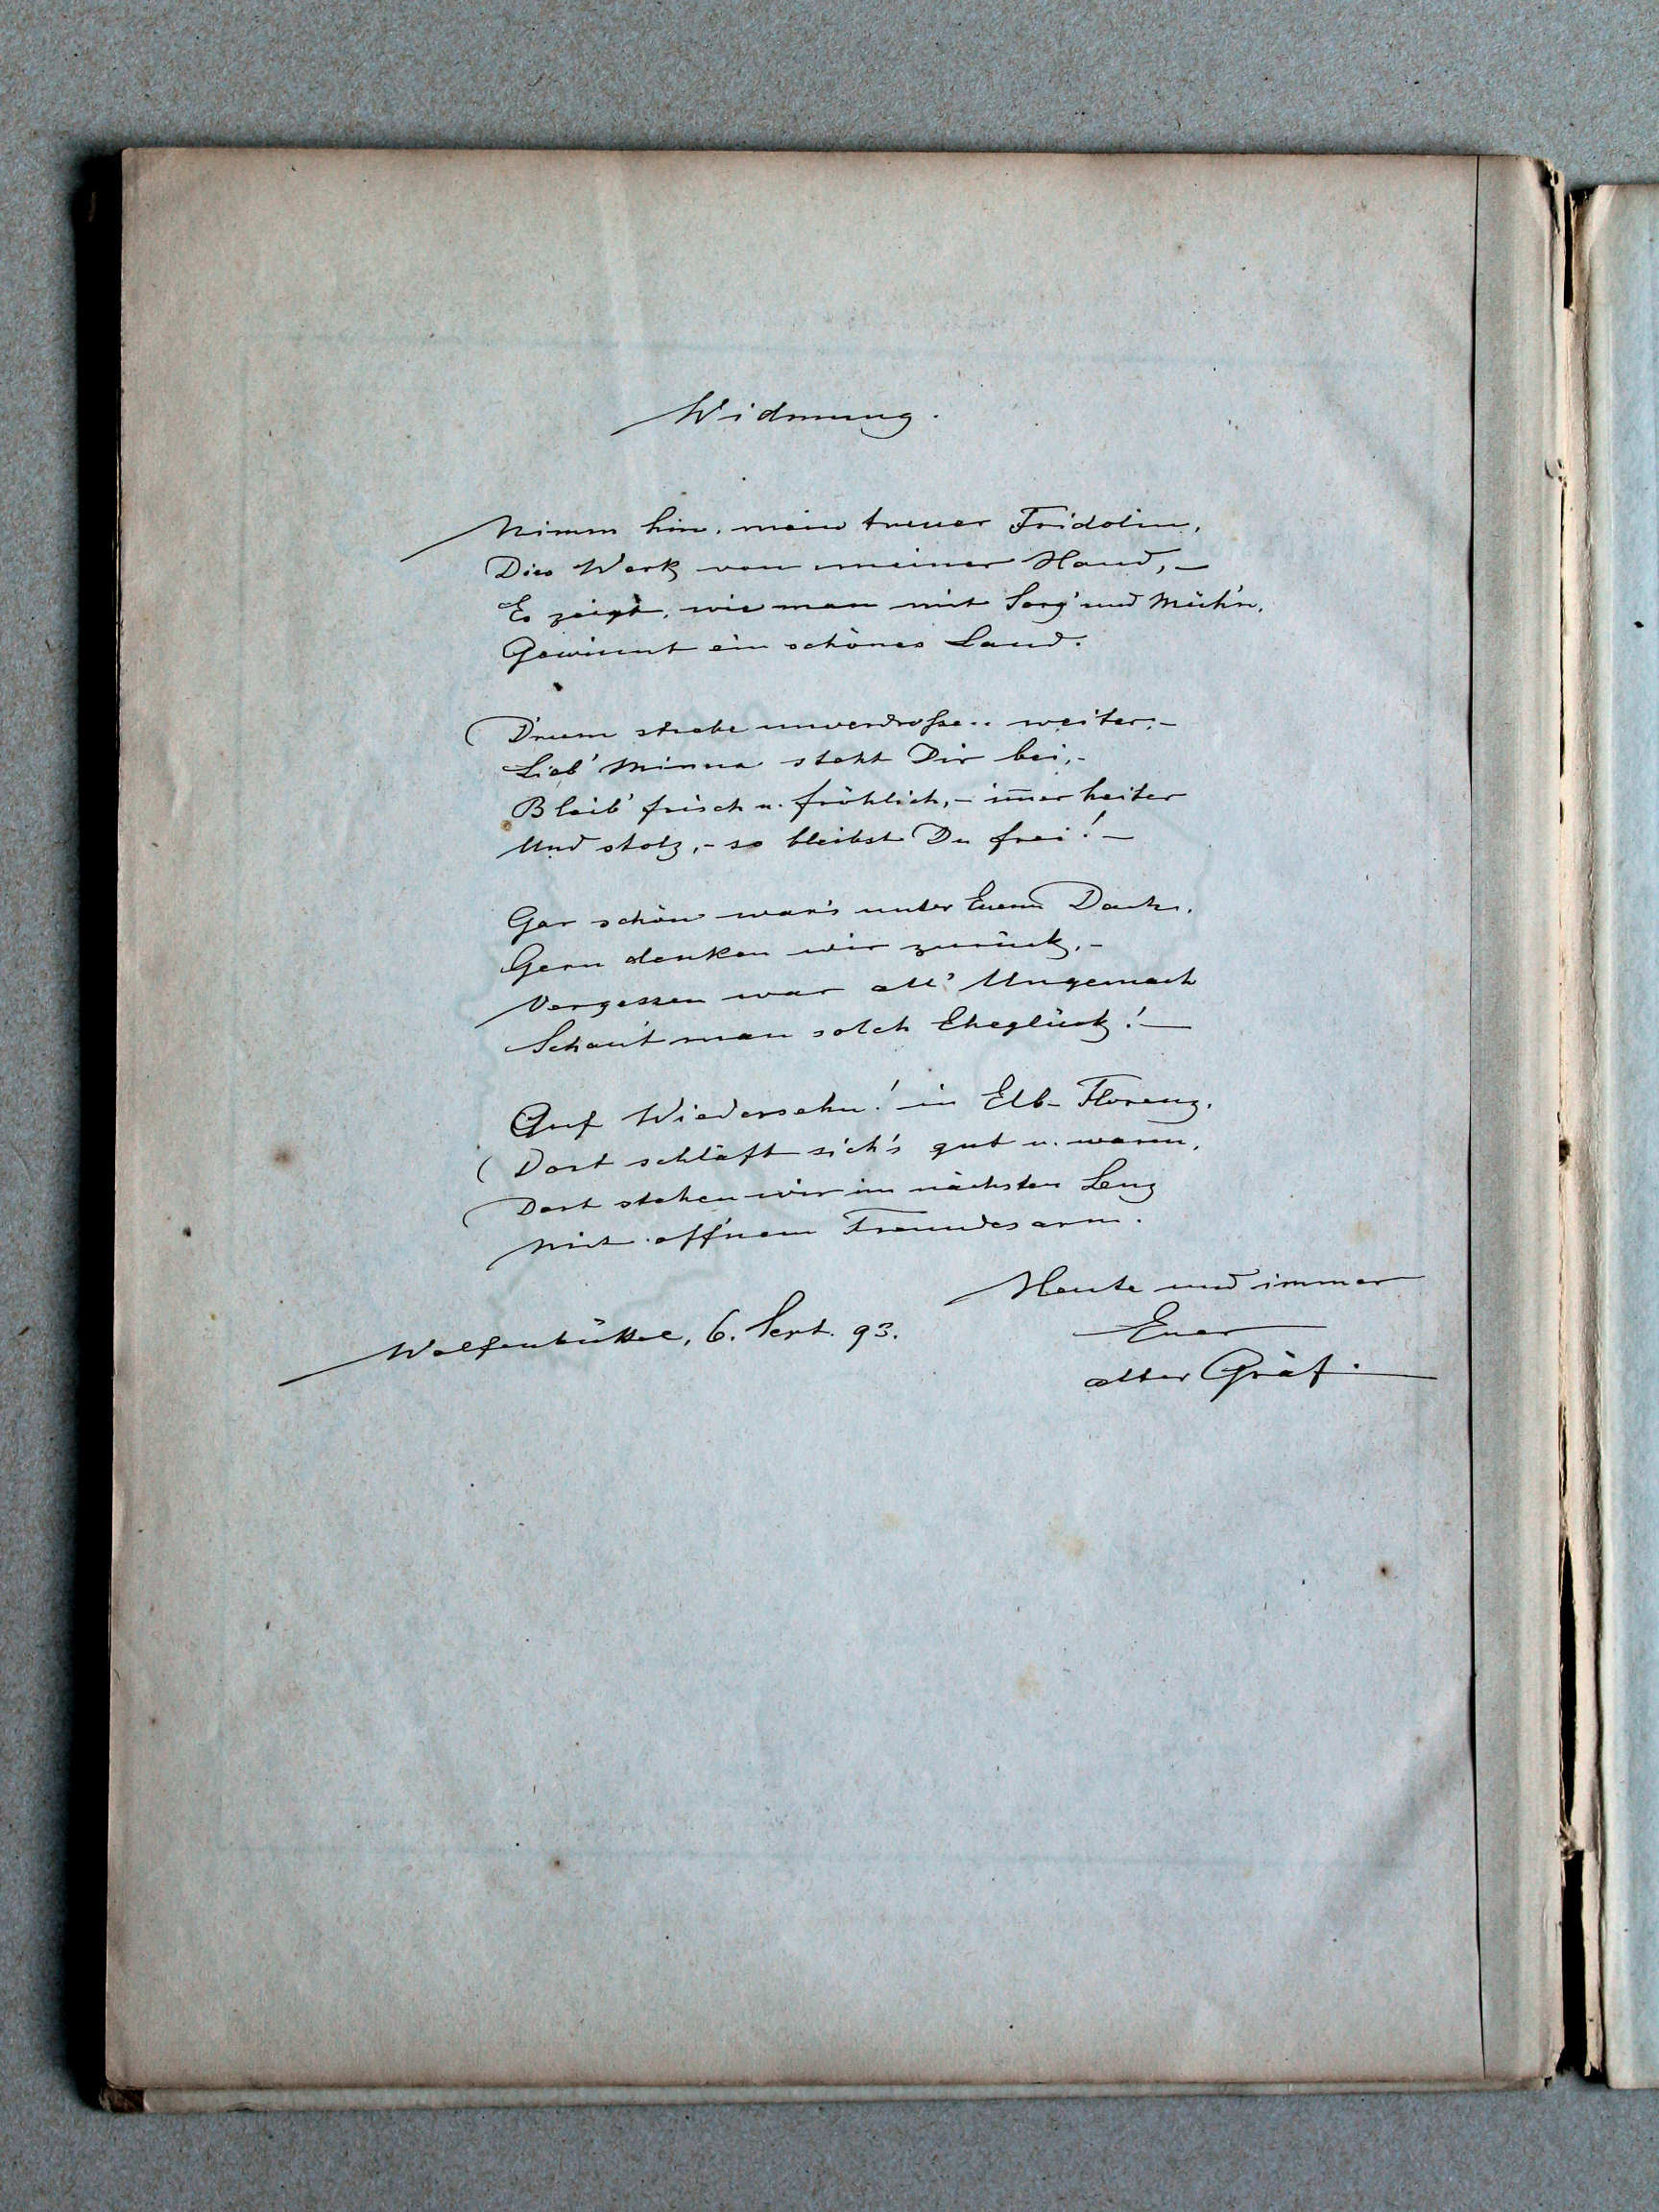 Widmung.
Nimm hin, mein treuer Fridolin,
Dies Werk von meiner Hand, –
Es zeigt, wie man mit Sorg' und Müh'n,
Gewinnt ein schönes Land.
D'rum strebe unverdrosse.. weiter, –
Lieb' Minna steht Dir bei, –
Bleib' frisch u. fröhlich, – im̅er heiter
Und stolz, – so bleibst Du frei! –
Gar schön war's unter Euerm Dach,
Gern denken wir zurück, –
Vergessen war all' Ungemach
Schau't man solch Eheglück! –
Auf Wiedersehn! in Elb-Florenz,
Dort schläft sich's gut u. warm,
Dort stehen wir im nächsten Lenz
Mit off'nem Freundesarm.
Heute und immer
Wolfenbüttel, 6. Sept. 93.
Euer
alter Gräf.